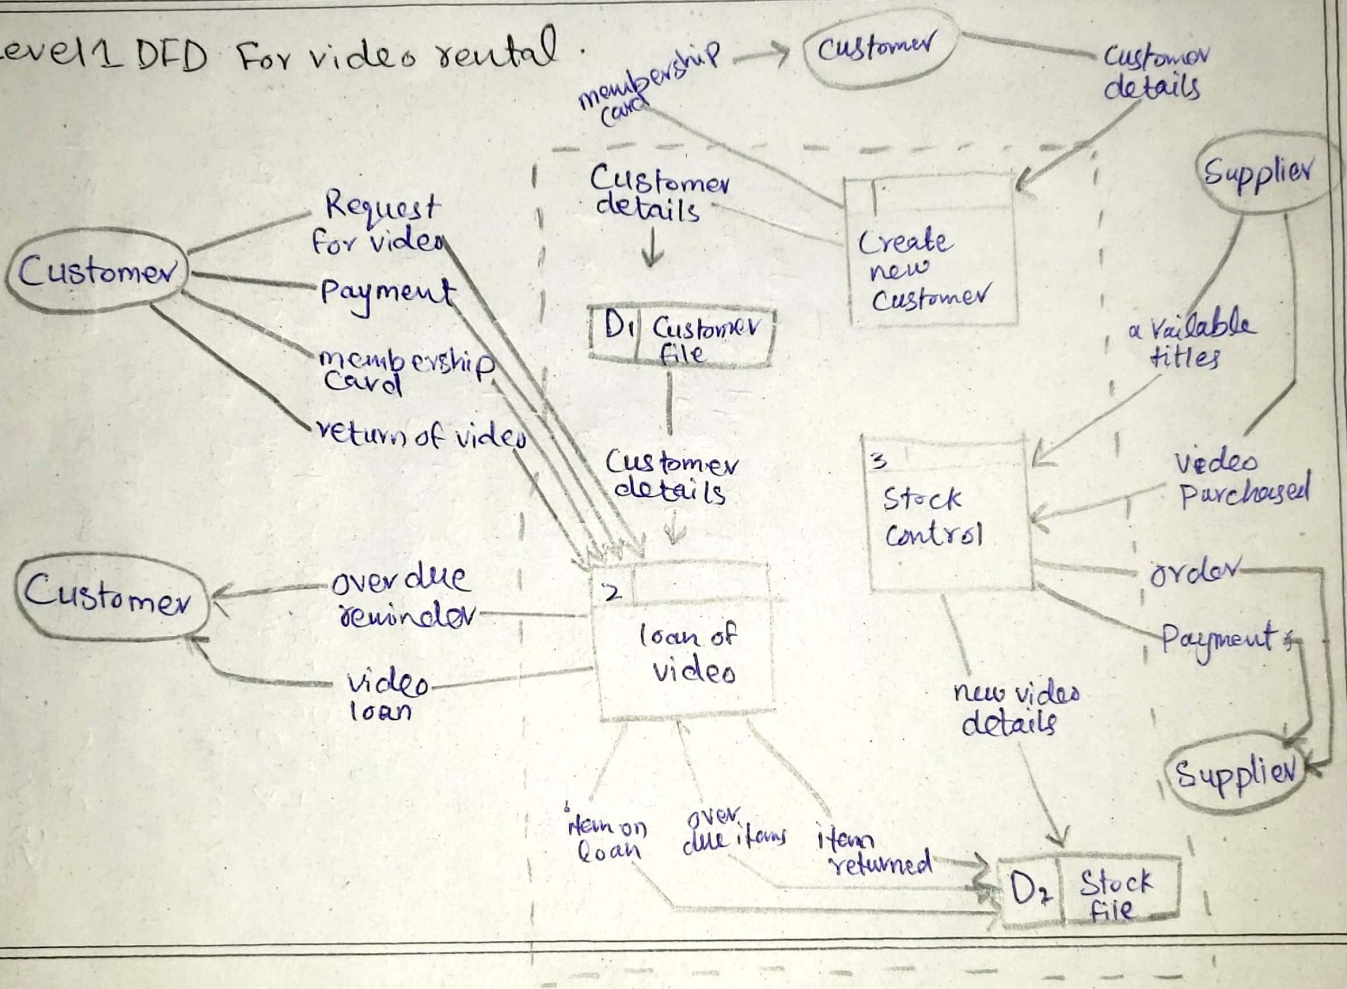 evel 1 DFD For video rental.
membership
card
Customer
Customer
details
Supplier
Customer
details
1
Create
new
Customer
Request
for video
Customer
payment
membership
card
return of video
D1 Customer
file
available
titles
Customer
details
3
Stock
control
Video
Purchased
order
Payment
Customer
over due
reminder
video
loan
2
loan of
video
new video
details
Supplier
item on
loan
over
due items
item
returned
D2 Stock
file